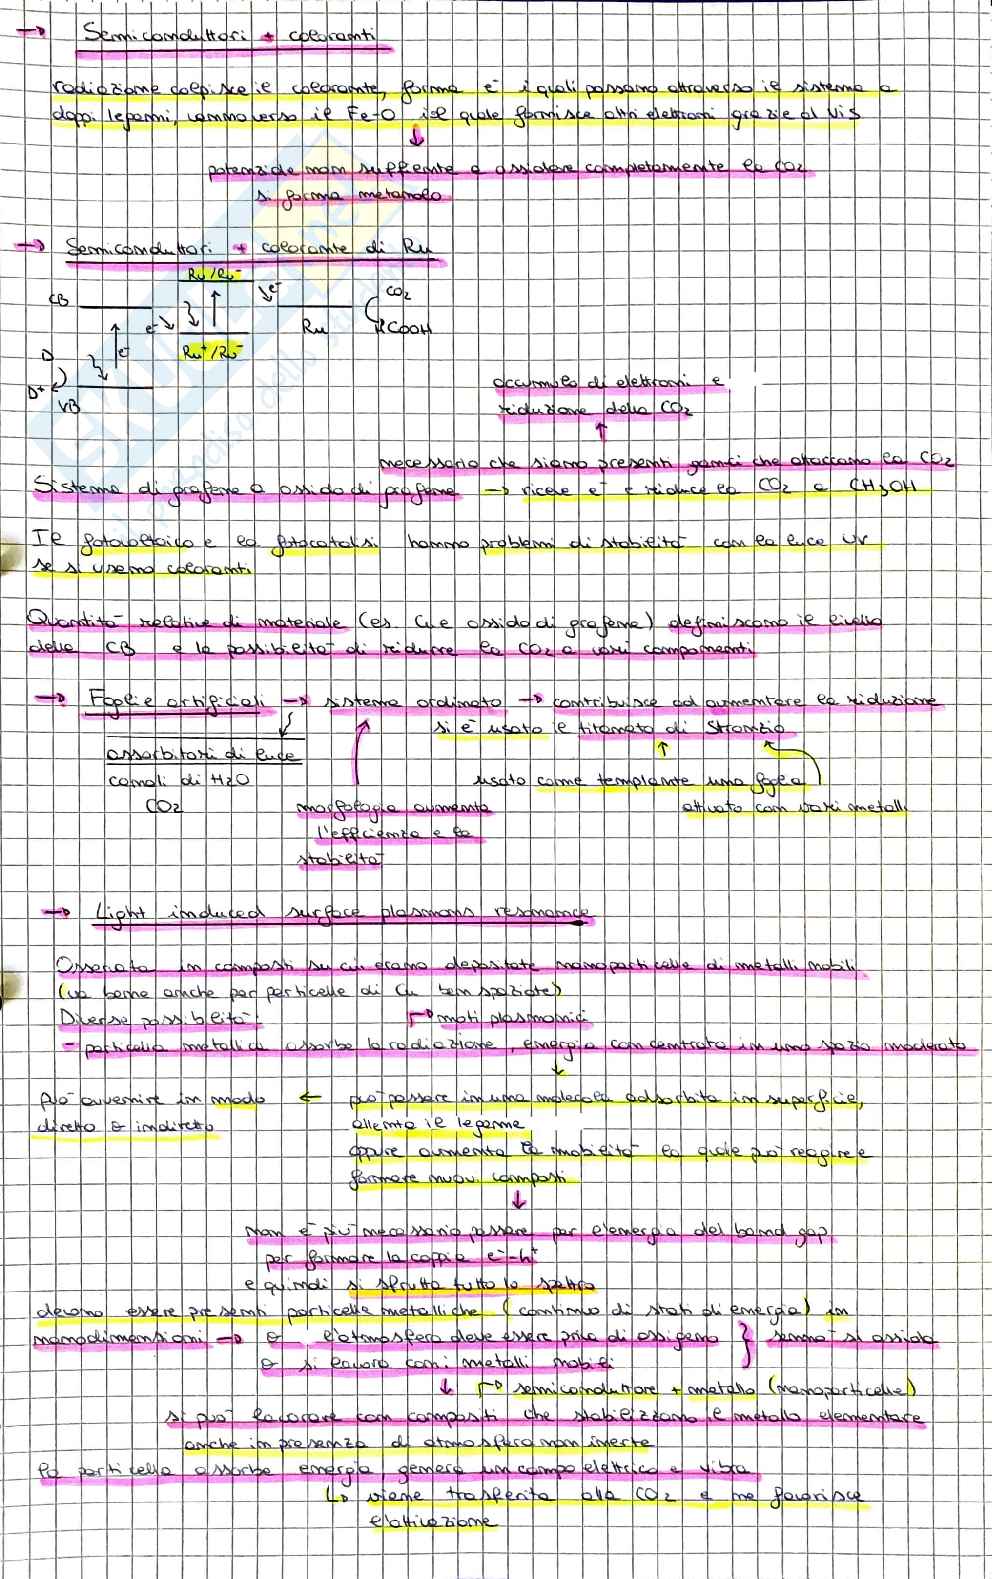 → Semiconduttori + coloranti
radiazione colpisce il colorante, forma e⁻ i quali passano attraverso il sistema a
doppi legami, verso il Fe-O il quale fornisce altri elettroni grazie al Vis
↓
potenziale non sufficiente a ossidare completamente la CO2
si forma metanolo
→ Semiconduttori + colorante di Ru
Ru/Ru⁻
CB e⁻ CO2
e⁻ Ru HCOOH
D e⁻ Ru⁺/Ru⁻
D⁺ VB
accumulo di elettroni e
riduzione della CO2
↑
necessario che siano presenti ganci che attaccano la CO2
Sistema di grafene o ossido di grafene → riceve e⁻ e riduce la CO2 a CH3OH
Il fotovoltaico e la fotocatalisi hanno problemi di stabilità con la luce UV
se si usano coloranti
Quantità relative di materiale (es. Cu e ossido di grafene) definiscono il livello
della CB e la possibilità di ridurre la CO2 a vari componenti
→ Foglie artificiali → sistema ordinato → contribuisce ad aumentare la riduzione
si è usato il titanato di Stronzio
assorbitori di luce
canali di H2O usato come templante una foglia
CO2 morfologia aumenta attivato con vari metalli
l'efficienza e la
stabilità
→ Light induced surface plasmons resonance
Osservata in composti su cui erano depositate nanoparticelle di metalli nobili
(va bene anche per particelle di Cu ben spaziate)
Diverse possibilità: → moti plasmonici
- particella metallica assorbe la radiazione, energia concentrata in uno spazio moderato
↓
può avvenire in modo ← può passare in una molecola adsorbita in superficie,
diretto o indiretto allenta il legame
oppure aumenta la mobilità la quale può reagire e
formare nuovi composti
↓
non è più necessario passare per l'energia del band gap
per formare la coppia e⁻-h⁺
e quindi si sfrutta tutto lo spettro
devono essere presenti particelle metalliche (continuo di stati di energia) in
nanodimensioni → o l'atmosfera deve essere priva di ossigeno } sennò si ossida
o si lavora con i metalli nobili
↓ → semiconduttore + metallo (nanoparticelle)
si può lavorare con compositi che stabilizzano il metallo elementare
anche in presenza di atmosfera non inerte
la particella assorbe energia, genera un campo elettrico e vibra
↳ viene trasferita alla CO2 e ne favorisce
l'attivazione